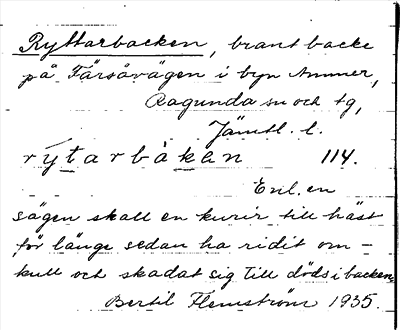 Ryttarbacken, brant backe
på Färsåvägen i byn Ammer,
Ragunda sn och tg,
Jämtl. l.
rýtarbàken 114.
Enl. en
sägen skall en kurir till häst
för länge sedan ha ridit om-
kull och skadat sig till döds i backen.
Bertil Flemström 1935.